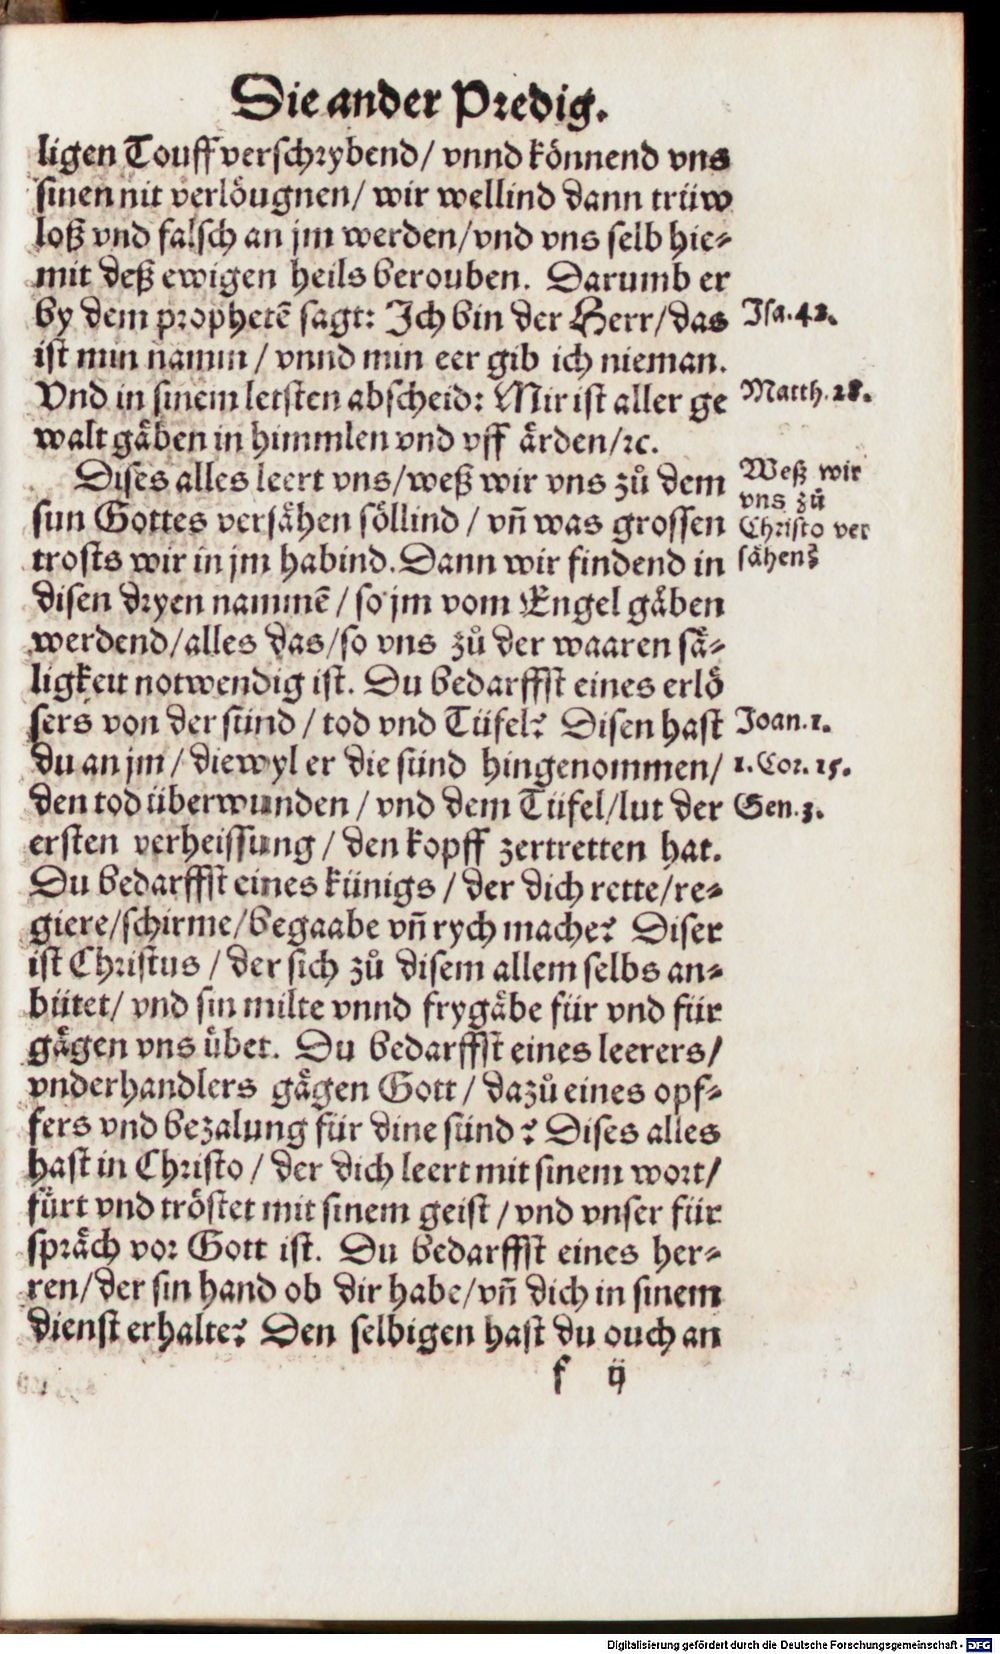 Die ander Predig.
ligen Touff verschrybend/ vnnd könnend vns
sinen nit verlöugnen/ wir wellind dann trüw
loß vnd falsch an jm werden/ vnd vns selb hie⸗
mit deß ewigen heils berouben. Darumb er
by dem prophetē sagt: Ich bin der Herr/ das
ist min namm/ vnnd min eer gib ich nieman.
Vnd in sinem letsten abscheid: Mir ist aller ge
walt gäben in himmlen vnd vff ärden/ ꝛc.
Dises alles leert vns/ weß wir vns zů dem
sun Gottes versähen söllind/ vñ was grossen
trosts wir in jm habind. Dann wir findend in
disen dryen nammē/ so jm vom Engel gäben
werdend/ alles das/ so vns zů der waaren sä⸗
ligkeit notwendig ist. Du bedarffst eines erlö
sers von der sünd/ tod vnd Tüfel? Disen hast
du an jm/ diewyl er die sünd hingenommen/
den tod überwunden/ vnd dem Tüfel/ lut der
ersten verheissung/ den kopff zertretten hat.
Du bedarffst eines künigs/ der dich rette/ re⸗
giere/ schirme/ begaabe vñ rych mache? Diser
ist Christus/ der sich zů disem allem selbs an⸗
bütet/ vnd sin milte vnnd frygäbe für vnd für
gägen vns übet. Du bedarffst eines leerers/
vnderhandlers gägen Gott/ dazů eines opf⸗
fers vnd bezalung für dine sünd? Dises alles
hast in Christo/ der dich leert mit sinem wort/
fürt vnd tröstet mit sinem geist/ vnd vnser für
spräch vor Gott ist. Du bedarffst eines her⸗
ren/ der sin hand ob dir habe/ vñ dich in sinem
dienst erhalte? Den selbigen hast du ouch an
f ij
Isa. 42.
Matth. 28.
Weß wir
vns zů
Christo ver
sähen?
Joan. 1.
1. Cor. 15.
Gen. 3.
Digitalisierung gefördert durch die Deutsche Forschungsgemeinschaft - DFG